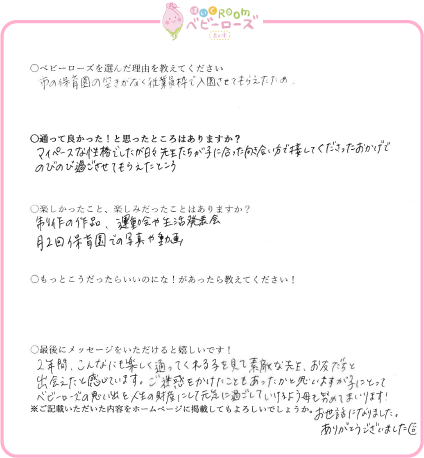 ほいくRoom
ベビーローズ
〇ベビーローズを選んだ理由を教えてください
市の保育園の空きがなく従業員枠で入園させてもらえたため。
〇通って良かった！と思ったところはありますか？
マイペースな性格でしたが日々先生たちが子に合った向き合い方で接してくださったおかげで
のびのび過ごさせてもらえたところ
〇楽しかったこと、楽しみだったことはありますか？
制作の作品、運動会や生活発表会
月2回保育園での写真や動画
〇もっとこうだったらいいのにな！があったら教えてください！
〇最後にメッセージをいただけると嬉しいです！
2年間、こんなにも楽しく通ってくれる子を見て素敵な先生、お友だちと
出会えたと感じています。ご迷惑をかけたこともあったかと思いますが子にとって
ベビーローズの思い出を人生の財産にして元気に過ごしていけるよう母も努めてまいります！
※ご記載いただいた内容をホームページに掲載してもよろしいでしょうか。お世話になりました。
ありがとうございました